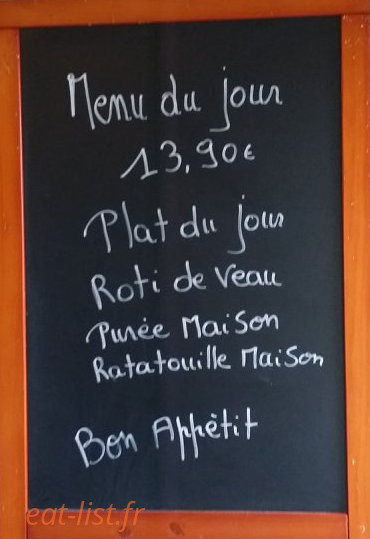 Menu du jour
13,90€
Plat du jour
Roti de Veau
Purée Maison
Ratatouille Maison
Bon Appètit
eat-list.fr